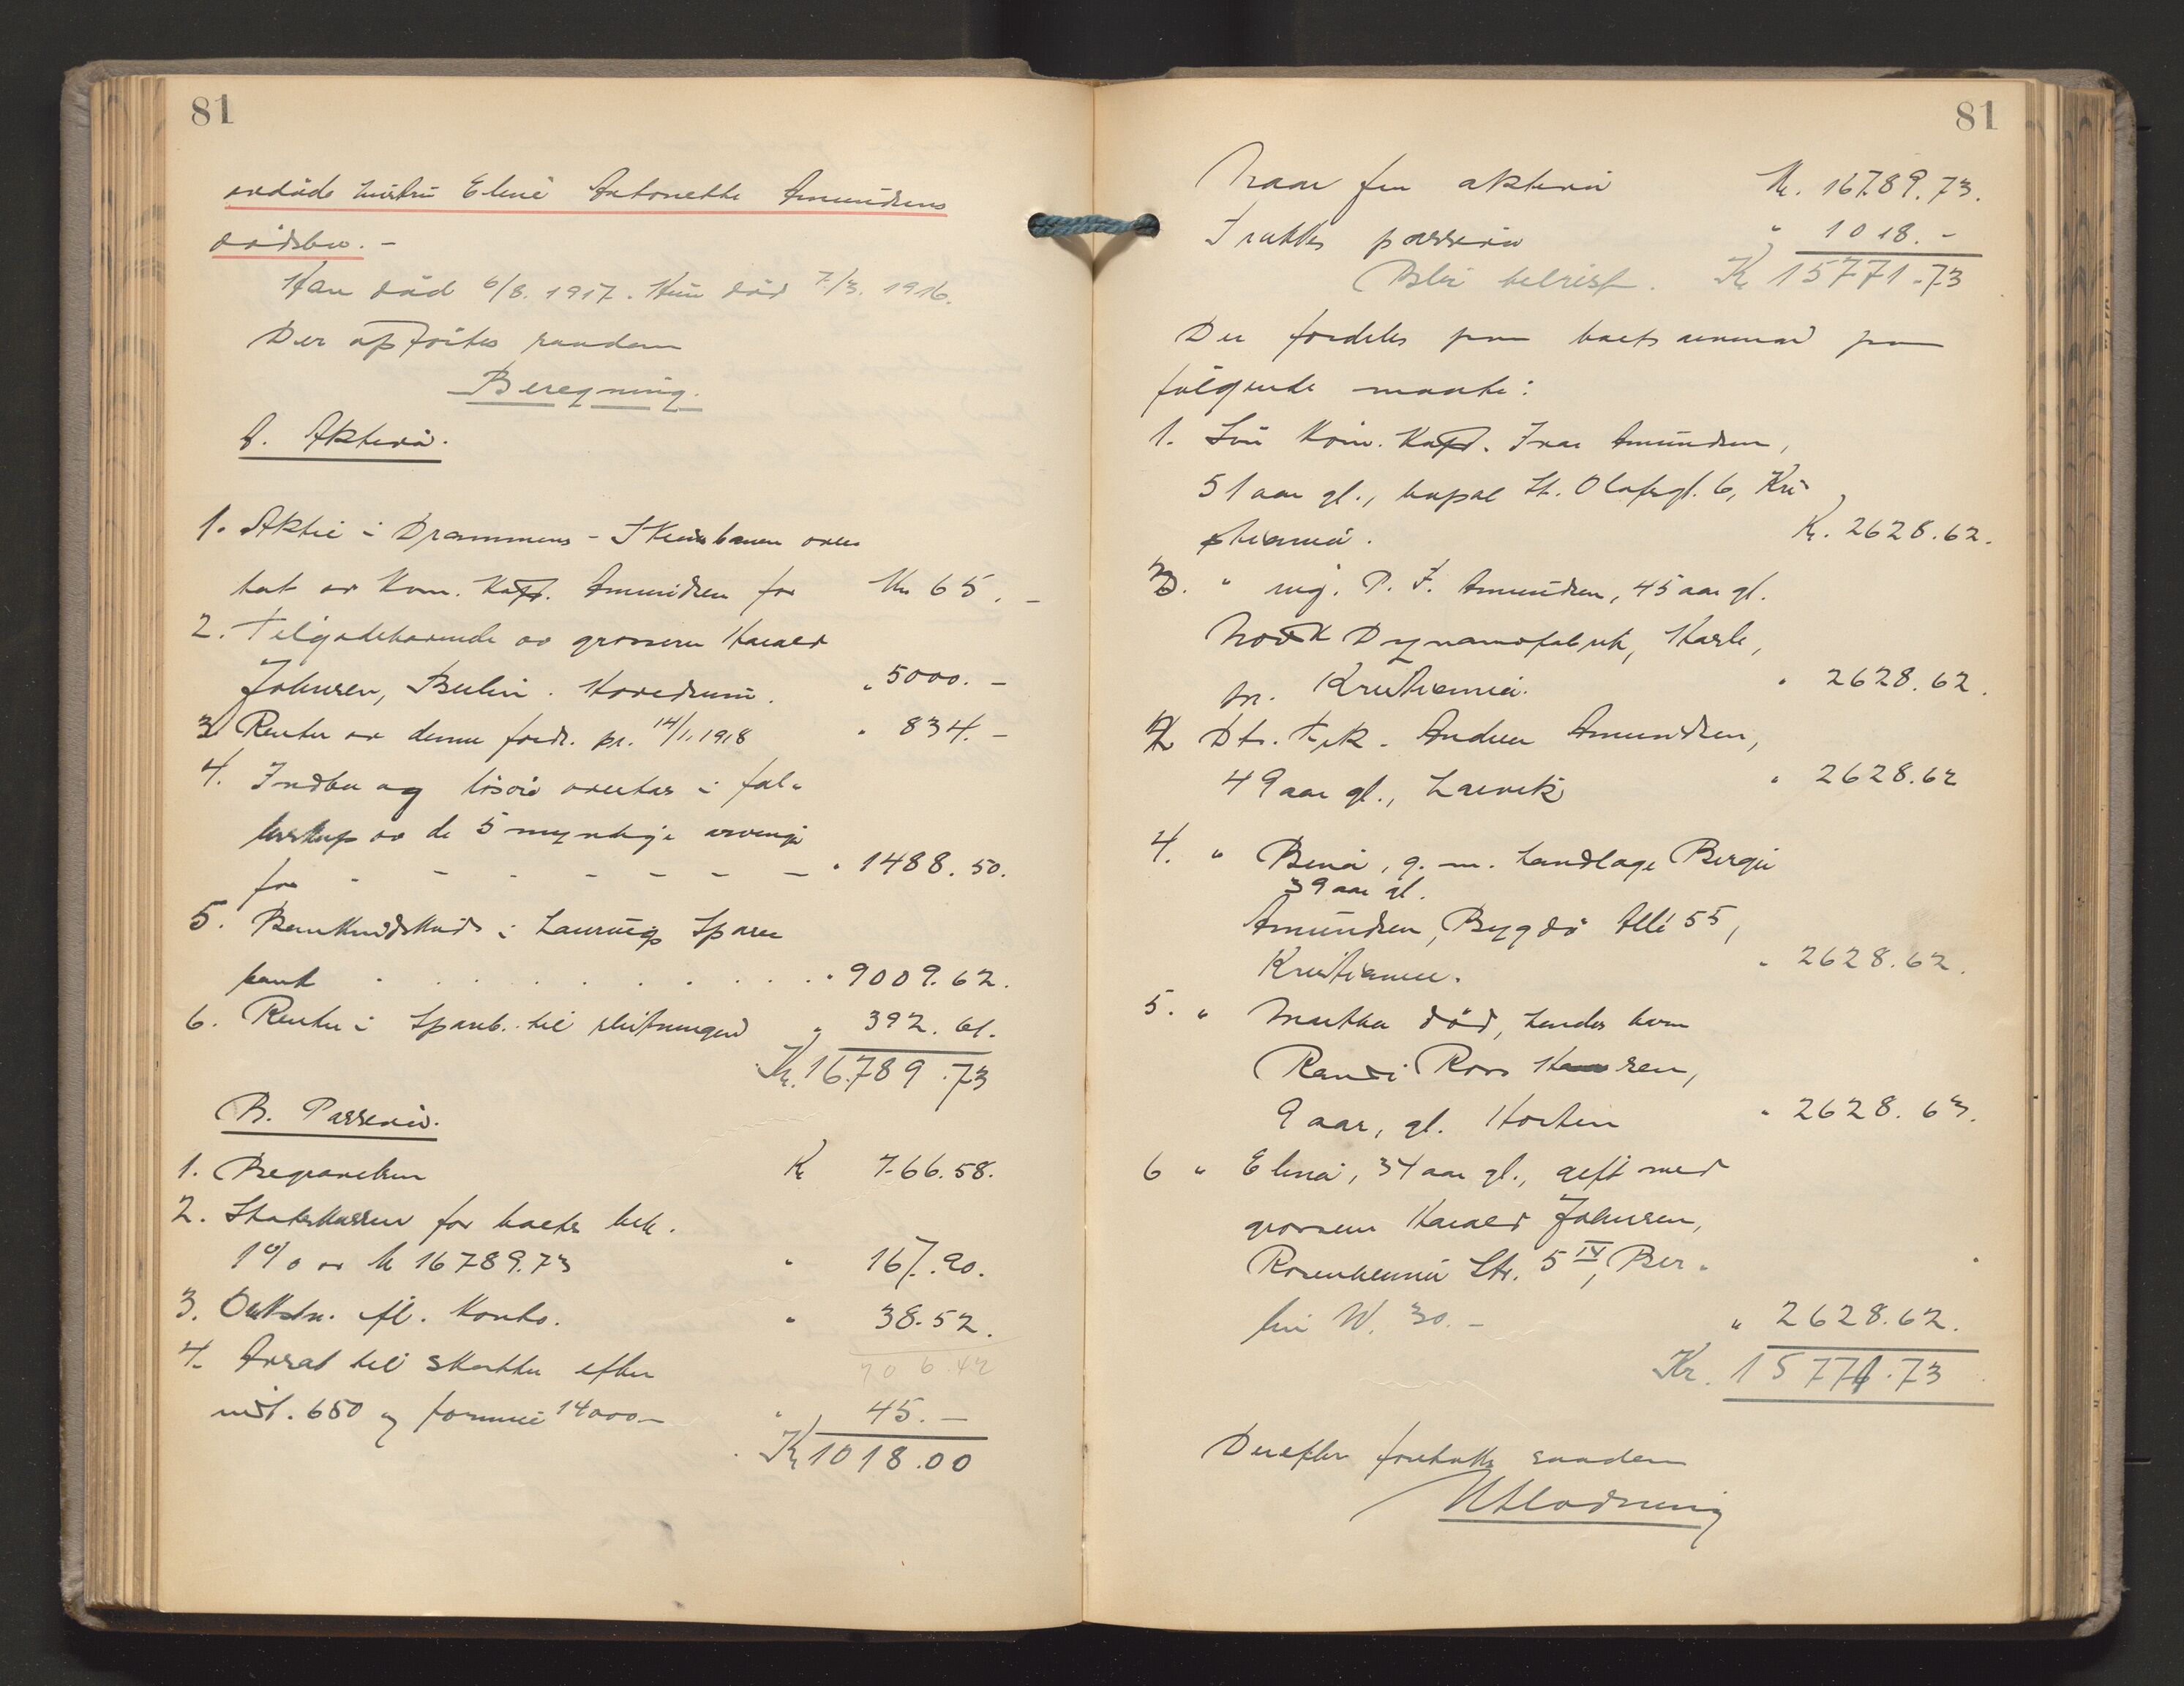 81
avdöde hustru Eline Antonette Amundsens
dödsbo. -
Han död 6/8. 1917. Hun död 7/3. 1916.
Der opförtes saadan
Beregning.
A. Aktiva.
1. Aktie i Drammens - Skiensbanen over
tat av Kom. Kapt. Amundsen for Kr 65. -
2. Tilgodehavende av grosserer Harald
Johnsen, Berlin. Hovedsum. " 5000. -
3 Renter av denne fordr. pr. 14/1. 1918 " 834. -
4. Indbo og lösöre overtas i fæl-
lesskap av de 5 myndige arvinger
for - - - - - - - " 1488.50.
5. Bankindskud i Laurvigs Spare
bank . . . . . . . . . " 9009.62.
6. Renter i Spareb. til slutningen " 392.61.
Kr. 16789.73
B. Passiva.
1. Begravelsen Kr 766.58.
2. Statskassen for boets beh.
1% av kr 16789.73 " 167.90.
3. Omkostn. ifl. konto. " 38.52.
4. Avsat til skatter efter
indt. 650 og formue 14000 - " 45. -
Kr 1018.00
81
Naar fra aktiva Kr. 16789.73.
Trækkes passiva " 1018. -
Blir tilrest. Kr 15771.73
Der fordeles paa boets paa
følgende maate:
1. Sön Kom. Kapt. Ivar Amundsen,
51 aar gl., bopæl St. Olafsgt. 6, Kri-
stiania. Kr. 2628.62.
3. " ing. P. F. Amundsen, 45 aar gl.
Norsk Dynamofabrik, Hasle,
pr. Kristiania. " 2628.62.
2 Dts. Andrea Amundsen,
49 aar gl., Larvik " 2628.62
4. " Bina, g. m. Landlæge Birger
39 aar gl.
Amundsen, Bygdö Allé 55,
Kristiania. " 2628.62.
5. " Martha död, hendes barn
Randi Roos Hansen,
9 aar, gl. Horten " 2628.63.
6 " Elina, 34 aar gl., gift med
grosserer Harald Johnsen,
Rosenheimer Str. 5 IV, Ber-
lin W. 30. - " 2628.62.
Kr. 15771.73
Derefter foretokes saadan
Utlodning